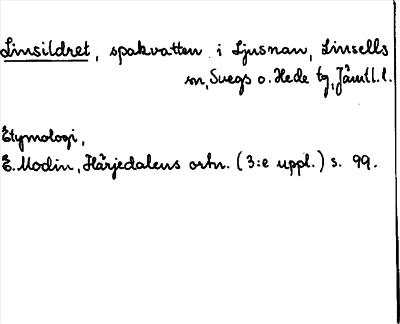 Linsildret, spakvatten i Ljusnan, Linsells
sn, Svegs o. Hede tg, Jämtl. l.
Etymologi,
E. Modin, Härjedalens ortn. (3:e uppl.) s. 99.